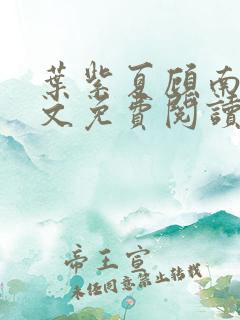 葉紫夏顧南
文免費閱讀
帝王宣
未经同意禁止转载